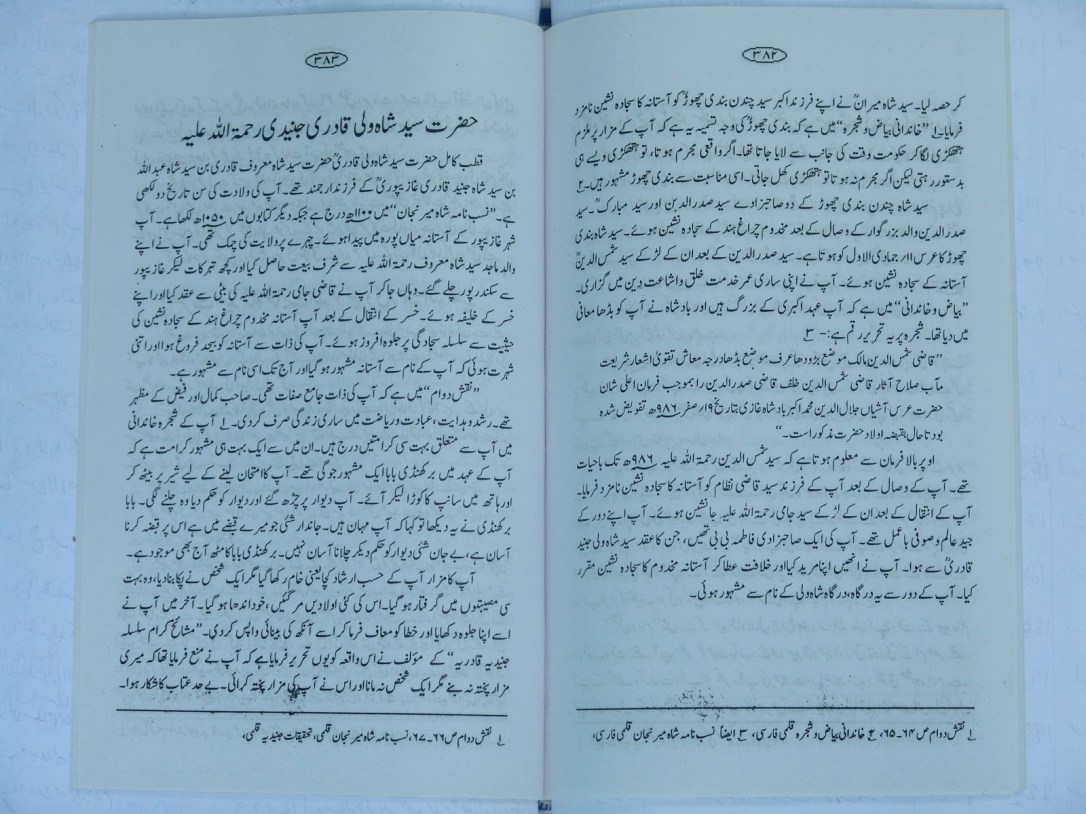 ۳۸۲
کر حصہ لیا۔ سید شاہ میراںؒ نے اپنے فرزند اکبر سید چندن بندی چھوڑؒ کو آستانہ کا سجادہ نشین نامزد
فرمایا۔۱؎ ”خاندانی بیاض و شجرہ“ میں ہے کہ بندی چھوڑؒ کی وجہ تسمیہ یہ ہے کہ آپ کے مزار پر ملزم
ہتھکڑی لگا کر حکومت وقت کی جانب سے لایا جاتا تھا۔ اگر واقعی مجرم ہوتا، تو ہتھکڑی ویسے ہی
بدستور رہتی لیکن اگر مجرم نہ ہوتا تو ہتھکڑی کھل جاتی۔ اسی مناسبت سے بندی چھوڑ مشہور ہیں۔ ۲؎
سید شاہ چندن بندی چھوڑ کے دو صاحبزادے سید صدر الدین اور سید مبارکؒ۔ سید
صدر الدین والد بزرگوار کے وصال کے بعد مخدوم چراغ ہند کے سجادہ نشین ہوئے۔ سید شاہ بندی
چھوڑ کا عرس ۱۱ جمادی الاول کو ہوتا ہے۔ سید صدر الدین کے بعد ان کے لڑکے سید شمس الدینؒ
آستانہ کے سجادہ نشین ہوئے۔ آپ نے اپنی ساری عمر خدمت خلق و اشاعت دین میں گزاری۔
”بیاض و خاندانی“ میں ہے کہ آپ عہد اکبری کے بزرگ ہیں اور بادشاہ نے آپ کو بڈھا معافی
میں دیا تھا۔ شجرہ پر یہ تحریر رقم ہے:- ۳؎
”قاضی شمس الدین مالک موضع بڑودھا عرف موضع بڈھا درجہ معاش تقویٰ اشعار شریعت
مآب صلاح آثار قاضی شمس الدین خلف قاضی صدر الدین را بموجب فرمان اعلیٰ شان
حضرت عرس آشیاں جلال الدین محمد اکبر بادشاہ غازی بتاریخ ۱۹؍ صفر ۹۸۶ھ تفویض شدہ
بود تا حال بقبضہ اولاد حضرت مذکور است۔“
اوپر بالا فرمان سے معلوم ہوتا ہے کہ سید شمس الدین رحمۃ اللہ علیہ ۹۸۶ھ تک باحیات
تھے۔ آپ کے وصال کے بعد آپ کے فرزند سید قاضی نظام کو آستانہ کا سجادہ نشین نامزد فرمایا۔
آپ کے انتقال کے بعد ان کے لڑکے سید جامی رحمۃ اللہ علیہ جانشین ہوئے۔ آپ اپنے دور کے
جید عالم و صوفی باعمل تھے۔ آپ کی ایک صاحبزادی فاطمہ بی بی تھیں، جن کا عقد سید شاہ ولی جنید
قادریؒ سے ہوا۔ آپ نے انھیں اپنا مرید کیا اور خلافت عطا کر آستانہ مخدوم کا سجادہ نشین مقرر
کیا۔ آپ کے دور سے یہ درگاہ، درگاہ شاہ ولی کے نام سے مشہور ہوئی۔
۱؎ نقش دوام ص ۶۴۔۶۵، ۲؎ خاندانی بیاض و شجرہ قلمی فارسی، ۳؎ ایضاً نسب نامہ شاہ میر نجان قلمی فارسی،
۳۸۳
حضرت سید شاہ ولی قادری جنیدی رحمۃ اللہ علیہ
قطب کامل حضرت سید شاہ ولی قادریؒ حضرت سید شاہ معروف قادری بن سید شاہ عبد اللہ
بن سید شاہ جنید قادری غازیپوریؒ کے فرزند ارجمند تھے۔ آپ کی ولادت کی سن تاریخ دو لکھی
ہے۔ ”نسب نامہ شاہ میر نجان“ میں ۱۱۰۰ھ درج ہے جبکہ دیگر کتابوں میں ۱۰۵۰ھ لکھا ہے۔ آپ
شہر غازیپور کے آستانہ میاں پورہ میں پیدا ہوئے۔ چہرے پر ولایت کی چمک تھی۔ آپ نے اپنے
والد ماجد سید شاہ معروف رحمۃ اللہ علیہ سے شرف بیعت حاصل کیا اور کچھ تبرکات لیکر غازیپور
سے سکندر پور چلے گئے۔ وہاں جا کر آپ نے قاضی جامی رحمۃ اللہ علیہ کی بیٹی سے عقد کیا اور اپنے
خسر کے خلیفہ ہوئے۔ خسر کے انتقال کے بعد آپ آستانہ مخدوم چراغ ہند کے سجادہ نشین کی
حیثیت سے سلسلہ سجادگی پر جلوہ افروز ہوئے۔ آپ کی ذات سے آستانہ کو بیحد فروغ ہوا اور اتنی
شہرت ہوئی کہ آپ کے نام سے آستانہ مشہور ہو گیا اور آج تک اسی نام سے مشہور ہے۔
”نقش دوام“ میں ہے کہ آپ کی ذات جامع صفات تھی۔ صاحب کمال اور فیض کے مظہر
تھے۔ رشد و ہدایت، عبادت و ریاضت میں ساری زندگی صرف کر دی۔ ۱؎ آپ کے شجرہ خاندانی
میں آپ سے متعلق بہت سی کرامتیں درج ہیں۔ ان میں سے ایک بہت ہی مشہور کرامت ہے کہ
آپ کے عہد میں برکھنڈی بابا ایک مشہور جوگی تھے۔ آپ کا امتحان لینے کے لیے شیر پر بیٹھ کر
اور ہاتھ میں سانپ کا کوڑا لیکر آئے۔ آپ دیوار پر چڑھ گئے اور دیوار کو حکم دیا وہ چلنے لگی۔ بابا
برکھنڈی نے یہ دیکھا تو کہا کہ آپ مہان ہیں۔ جاندار شئی جو میرے قبضے میں ہے اس پر قبضہ کرنا
آسان ہے، بے جان شئی دیوار کو حکم دیکر چلانا آسان نہیں۔ برکھنڈی بابا کا مٹھ آج بھی موجود ہے۔
آپ کا مزار آپ کے حسب ارشاد کچا یعنی خام رکھا گیا مگر ایک شخص نے پکا بنا دیا، وہ بہت
سی مصیبتوں میں گرفتار ہو گیا۔ اس کی کئی اولادیں مر گئیں، خود اندھا ہو گیا۔ آخر میں آپ نے
اسے اپنا جلوہ دکھایا اور خطا کو معاف فرما کر اسے آنکھ کی بینائی واپس کر دی۔ ”مشائخ کرام سلسلہ
جنیدیہ قادریہ“ کے مؤلف نے اس واقعہ کو یوں تحریر فرمایا ہے کہ آپ نے منع فرمایا تھا کہ میری
مزار پختہ نہ بنے مگر ایک شخص نہ مانا اور اس نے آپ کی مزار پختہ کرائی۔ بے حد عتاب کا شکار ہوا۔
۱؎ نقش دوام ص ۶۶۔۶۷، نسب نامہ شاہ میر نجان قلمی، تحقیقات جنیدیہ قلمی،